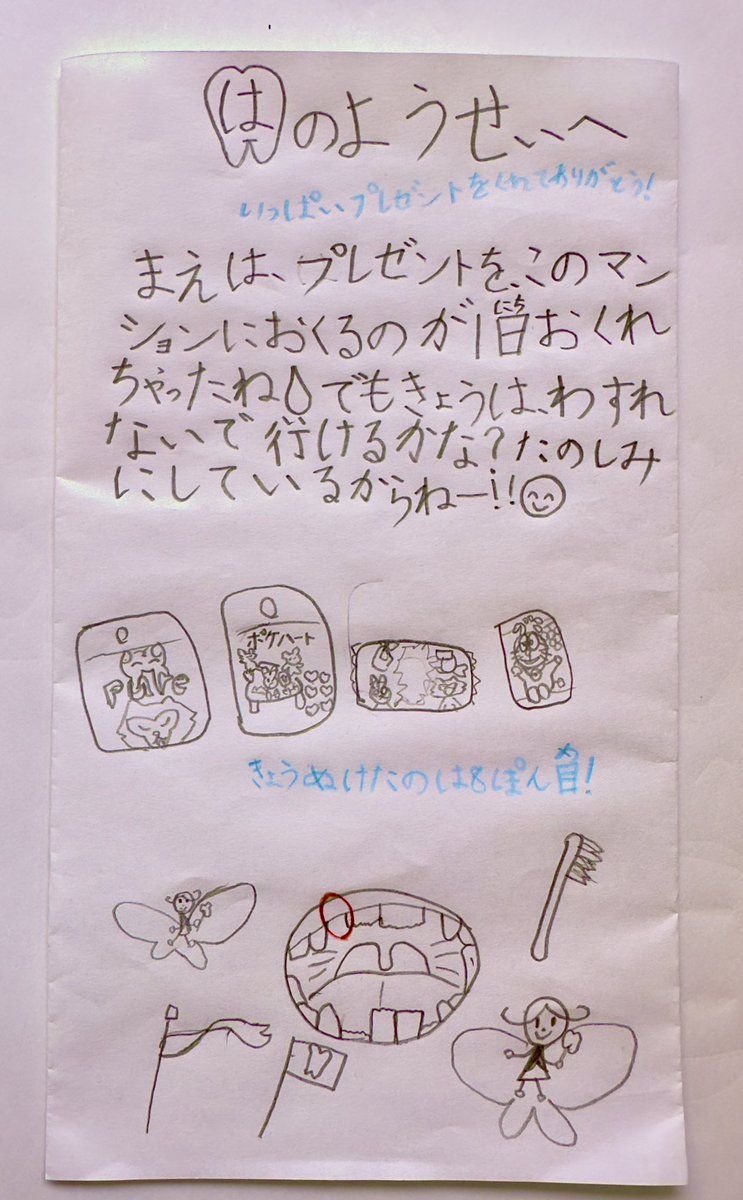 はのようせいへ
いっぱいプレゼントをくれてありがとう!
まえは、プレゼントを、このマン
ションにおくるのが1日おくれ
にち
ちゃったねでもきょうは、わすれ
ないで行けるかな?たのしみ
にしているからねー!!
ポケハート
きょうぬけたのは8ぽん目!
め